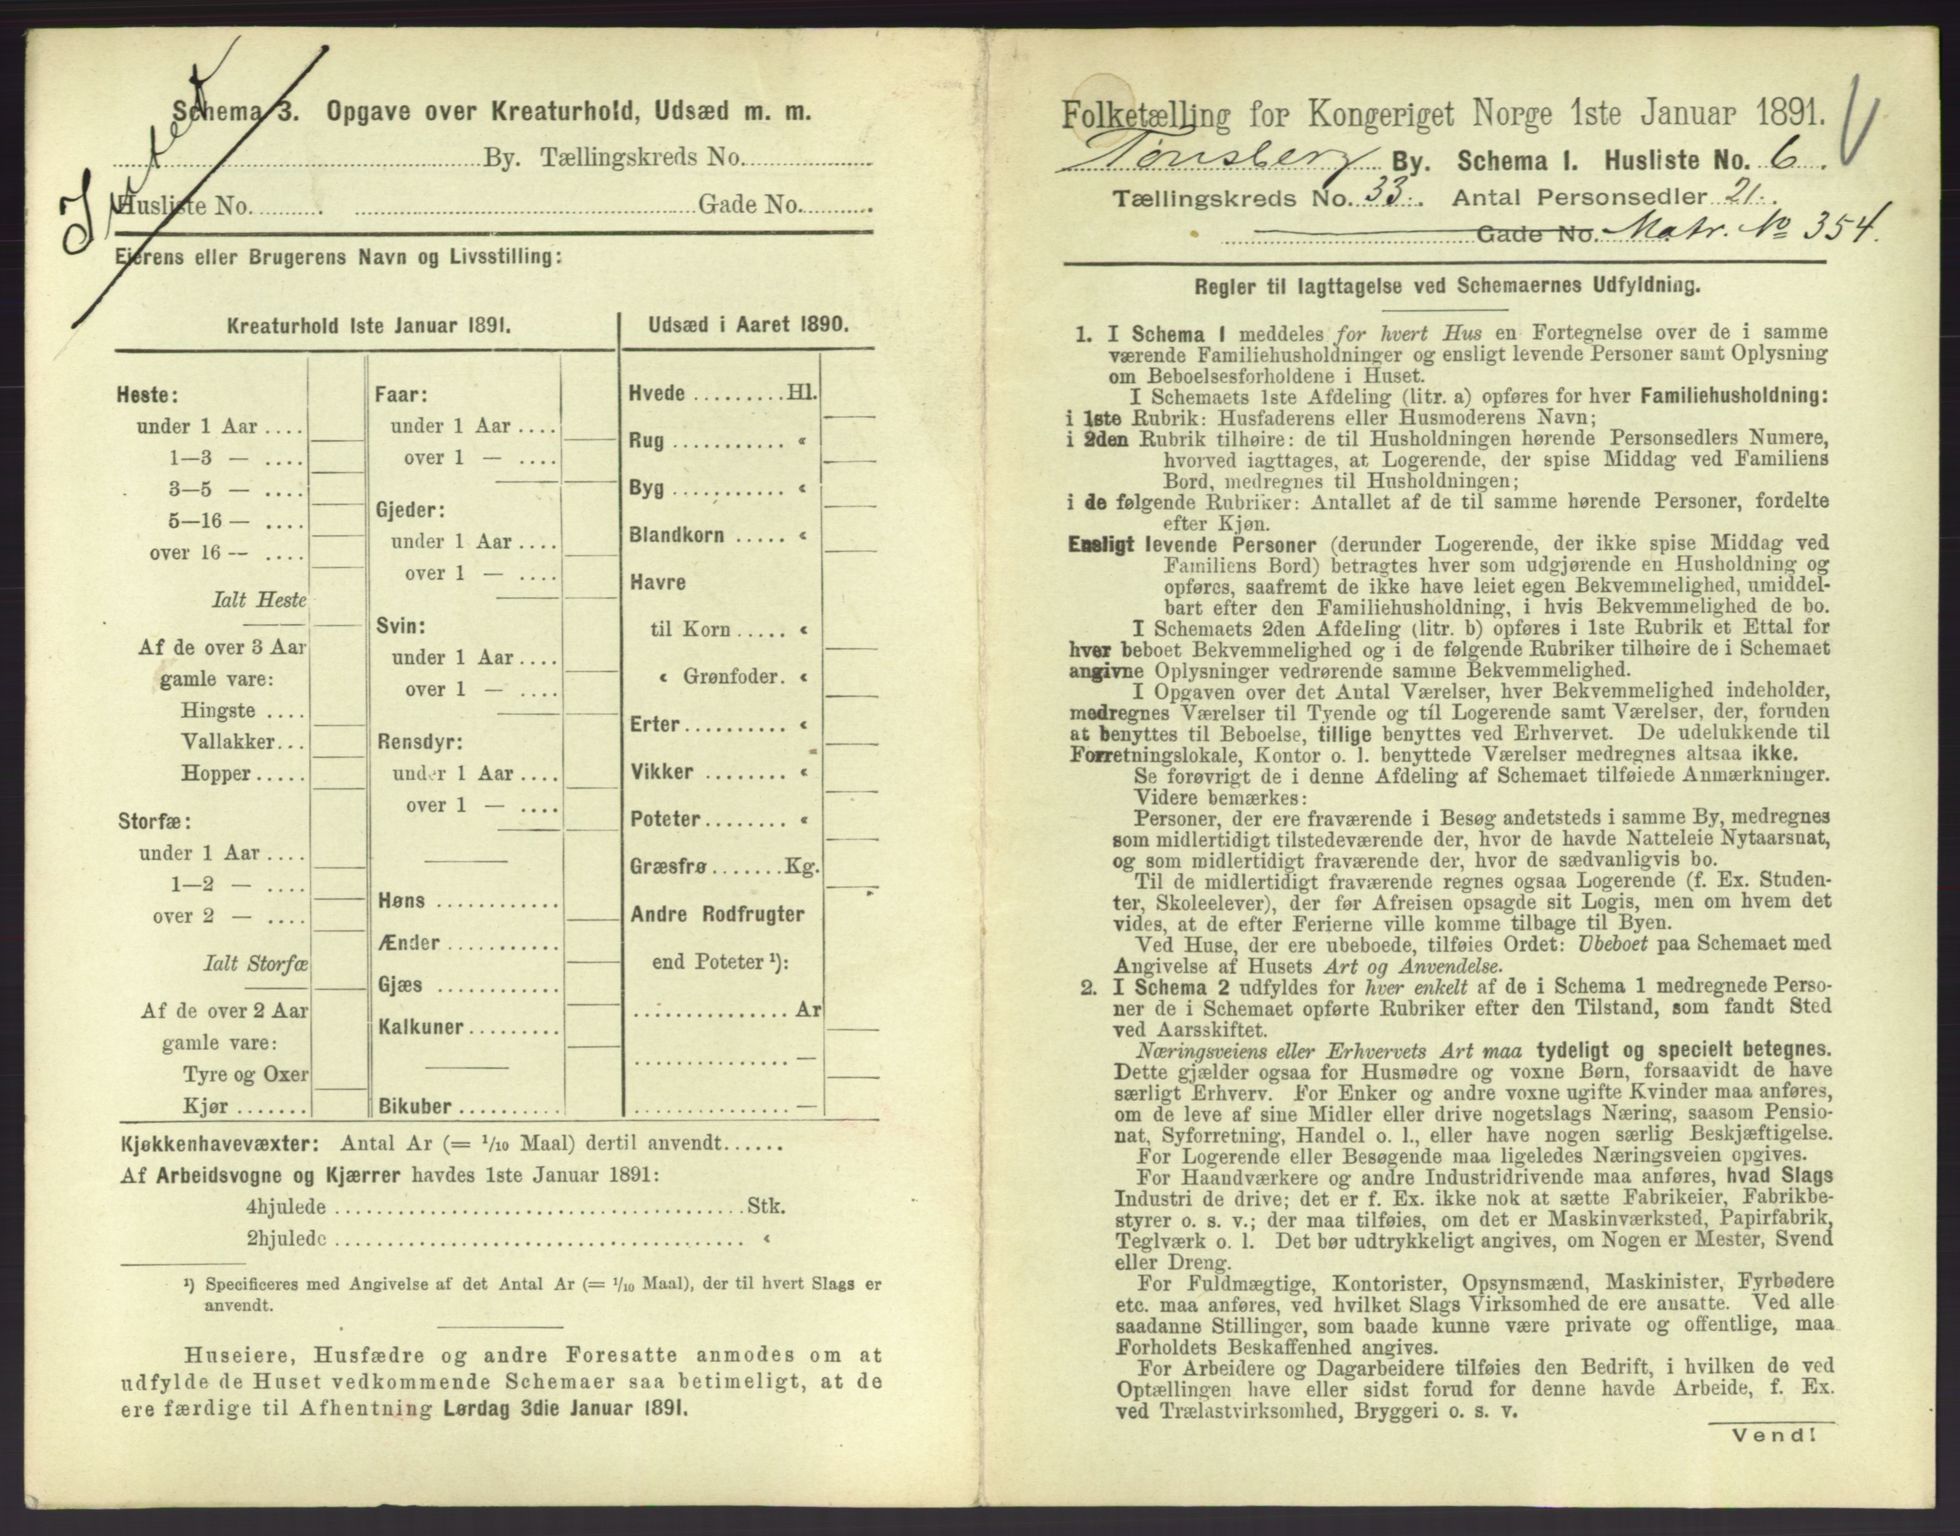 Schema 3. Opgave over Kreaturhold, Udsæd m. m.
By. Tællingskreds No.
Husliste No. Gade No.
Intet
Eierens eller Brugerens Navn og Livsstilling:
Kreaturhold 1ste Januar 1891.
Heste:
under 1 Aar ....
1—3 — ....
3—5 — ....
5—16 — ....
over 16 — ....
Ialt Heste
Af de over 3 Aar
gamle vare:
Hingste ....
Vallakker...
Hopper.....
Storfæ:
under 1 Aar ....
1—2 — ....
over 2 — ....
Ialt Storfæ
Af de over 2 Aar
gamle vare:
Tyre og Oxer
Kjør .......
Faar:
under 1 Aar ....
over 1 — ....
Gjeder:
under 1 Aar ....
over 1 — ....
Svin:
under 1 Aar ....
over 1 — ....
Rensdyr:
under 1 Aar ....
over 1 — ....
Høns ............
Ænder ...........
Gjæs ............
Kalkuner.........
Bikuber..........
Udsæd i Aaret 1890.
Hvede .........Hl.
Rug ........... «
Byg ........... «
Blandkorn ..... «
Havre
til Korn ..... «
« Grønfoder. «
Erter.......... «
Vikker ........ «
Poteter........ «
Græsfrø .......Kg.
Andre Rodfrugter
end Poteter ¹):
............... Ar
............... —
............... —
Kjøkkenhavevæxter: Antal Ar (= 1/10 Maal) dertil anvendt......
Af Arbeidsvogne og Kjærrer havdes 1ste Januar 1891:
4hjulede ....................................... Stk.
2hjulede ....................................... «
¹) Specificeres med Angivelse af det Antal Ar (= 1/10 Maal), der til hvert Slags er
anvendt.
Huseiere, Husfædre og andre Foresatte anmodes om at
udfylde de Huset vedkommende Schemaer saa betimeligt, at de
ere færdige til Afhentning Lørdag 3die Januar 1891.
Folketælling for Kongeriget Norge 1ste Januar 1891.
Tønsberg By. Schema 1. Husliste No. 6.
Tællingskreds No. 33. Antal Personsedler 21.
Gade No. Matr. No 354.
Regler til Iagttagelse ved Schemaernes Udfyldning.
1. I Schema 1 meddeles for hvert Hus en Fortegnelse over de i samme
værende Familiehusholdninger og ensligt levende Personer samt Oplysning
om Beboelsesforholdene i Huset.
I Schemaets 1ste Afdeling (litr. a) opføres for hver Familiehusholdning:
i 1ste Rubrik: Husfaderens eller Husmoderens Navn;
i 2den Rubrik tilhøire: de til Husholdningen hørende Personsedlers Numere,
hvorved iagttages, at Logerende, der spise Middag ved Familiens
Bord, medregnes til Husholdningen;
i de følgende Rubriker: Antallet af de til samme hørende Personer, fordelte
efter Kjøn.
Ensligt levende Personer (derunder Logerende, der ikke spise Middag ved
Familiens Bord) betragtes hver som udgjørende en Husholdning og
opføres, saafremt de ikke have leiet egen Bekvemmelighed, umiddel-
bart efter den Familiehusholdning, i hvis Bekvemmelighed de bo.
I Schemaets 2den Afdeling (litr. b) opføres i 1ste Rubrik et Ettal for
hver beboet Bekvemmelighed og i de følgende Rubriker tilhøire de i Schemaet
angivne Oplysninger vedrørende samme Bekvemmelighed.
I Opgaven over det Antal Værelser, hver Bekvemmelighed indeholder,
medregnes Værelser til Tyende og til Logerende samt Værelser, der, foruden
at benyttes til Beboelse, tillige benyttes ved Erhvervet. De udelukkende til
Forretningslokale, Kontor o. l. benyttede Værelser medregnes altsaa ikke.
Se forøvrigt de i denne Afdeling af Schemaet tilføiede Anmærkninger.
Videre bemærkes:
Personer, der ere fraværende i Besøg andetsteds i samme By, medregnes
som midlertidigt tilstedeværende der, hvor de havde Natteleie Nytaarsnat,
og som midlertidigt fraværende der, hvor de sædvanligvis bo.
Til de midlertidigt fraværende regnes ogsaa Logerende (f. Ex. Studen-
ter, Skoleelever), der før Afreisen opsagde sit Logis, men om hvem det
vides, at de efter Ferierne ville komme tilbage til Byen.
Ved Huse, der ere ubeboede, tilføies Ordet: Ubeboet paa Schemaet med
Angivelse af Husets Art og Anvendelse.
2. I Schema 2 udfyldes for hver enkelt af de i Schema 1 medregnede Perso-
ner de i Schemaet opførte Rubriker efter den Tilstand, som fandt Sted
ved Aarsskiftet.
Næringsveiens eller Erhvervets Art maa tydeligt og specielt betegnes.
Dette gjælder ogsaa for Husmødre og voxne Børn, forsaavidt de have
særligt Erhverv. For Enker og andre voxne ugifte Kvinder maa anføres,
om de leve af sine Midler eller drive nogetslags Næring, saasom Pensio-
nat, Syforretning, Handel o. l., eller have nogen særlig Beskjæftigelse.
For Logerende eller Besøgende maa ligeledes Næringsveien opgives.
For Haandværkere og andre Industridrivende maa anføres, hvad Slags
Industri de drive; det er f. Ex. ikke nok at sætte Fabrikeier, Fabrikbe-
styrer o. s. v.; der maa tilføies, om det er Maskinværksted, Papirfabrik,
Teglværk o. l. Det bør udtrykkeligt angives, om Nogen er Mester, Svend
eller Dreng.
For Fuldmægtige, Kontorister, Opsynsmænd, Maskinister, Fyrbødere
etc. maa anføres, ved hvilket Slags Virksomhed de ere ansatte. Ved alle
saadanne Stillinger, som baade kunne være private og offentlige, maa
Forholdets Beskaffenhed angives.
For Arbeidere og Dagarbeidere tilføies den Bedrift, i hvilken de ved
Optællingen have eller sidst forud for denne havde Arbeide, f. Ex.
ved Trælastvirksomhed, Bryggeri o. s. v.
Vend!